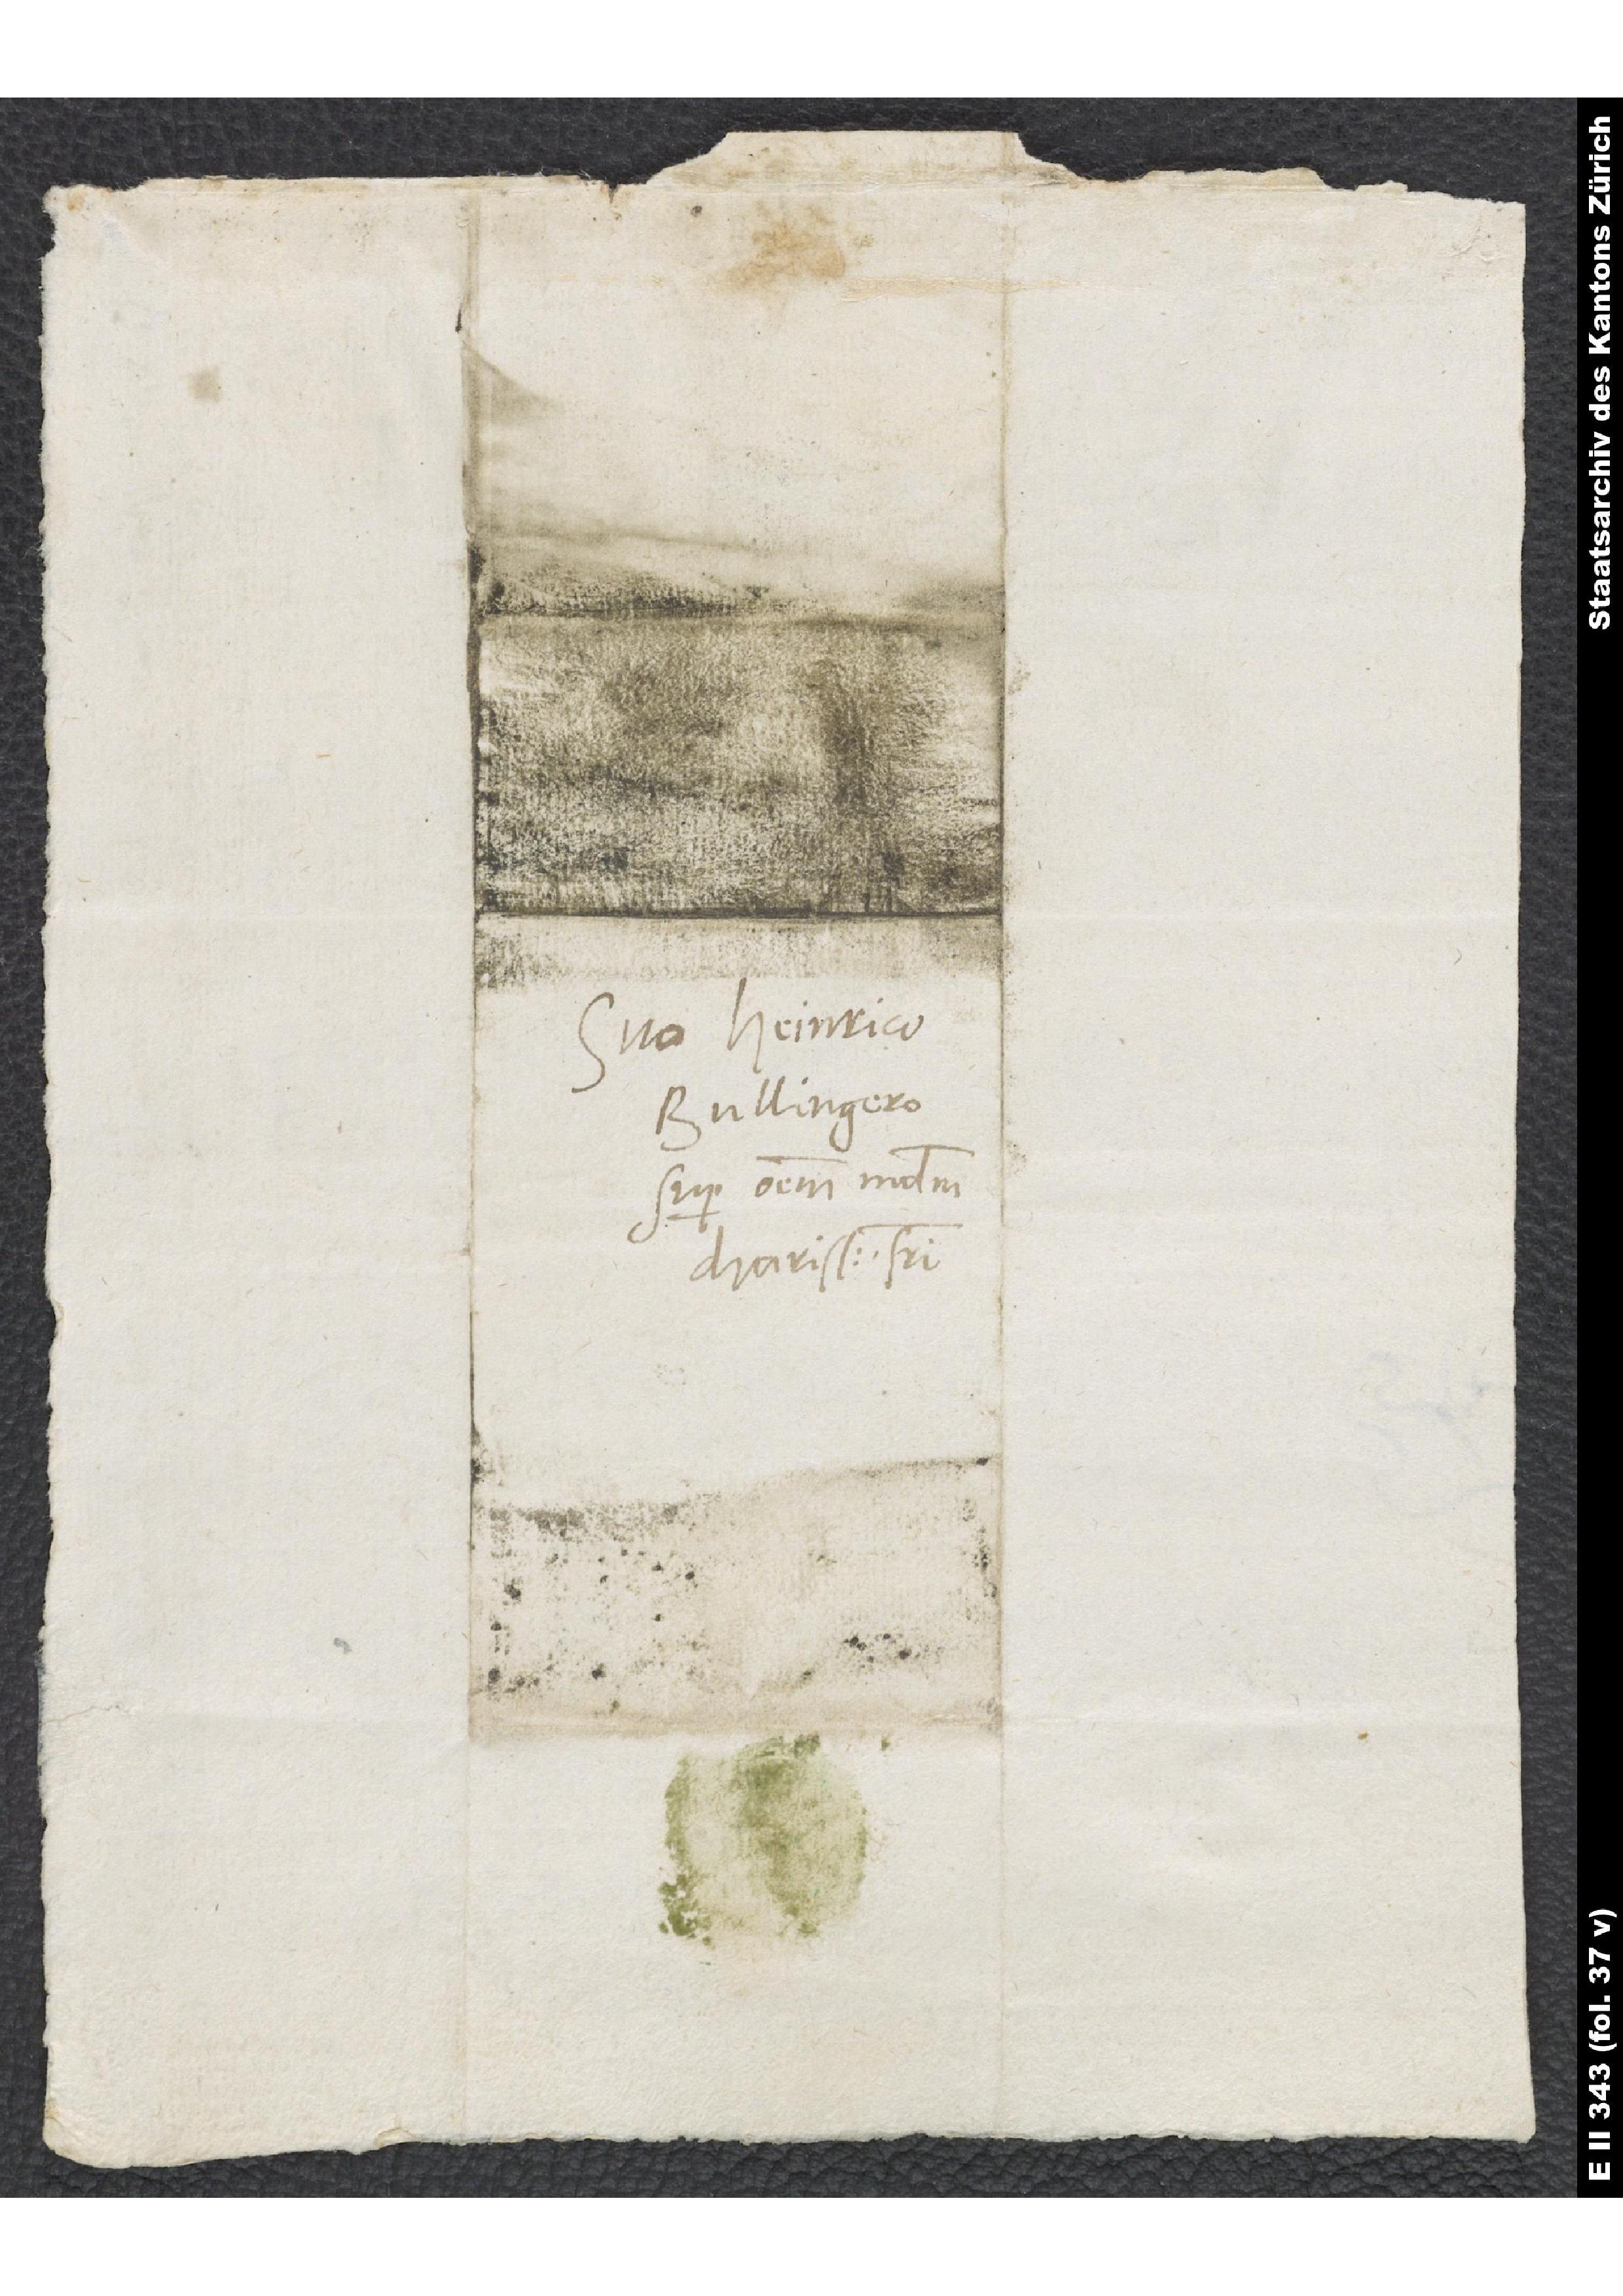 Suo Heinrico
Bullingero
sup oēm modm̄
chariss: fri
Staatsarchiv des Kantons Zürich
E II 343 (fol. 37 v)